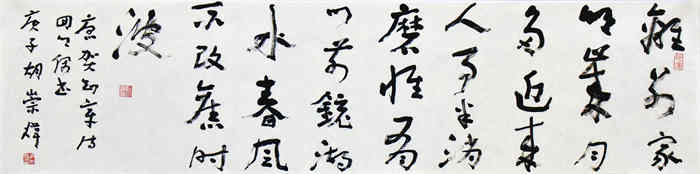 離别家
鄉歲月
多近來
人事半消
磨惟有
門前鏡湖
水春風
不改舊時
波
唐賀知章詩
回乡偶书
庚子胡崇煒